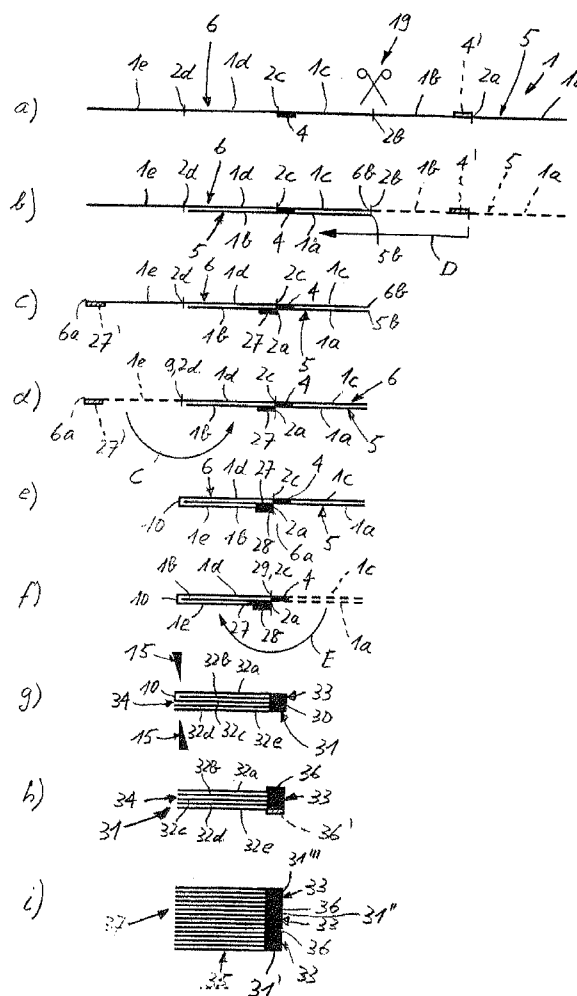 6 19 4' 5
1e 2d 1d 2c 1c 1b 2a 1 1a
a) 4 2b
1e 2d 6 1d 2c 1c 6b 2b 1b 4' 5 1a
b) 5 1b 4 1a 5b D
1e 2d 6 1d 2c 4 1c 6b
c) 6a 27' 1b 27 2a 5 1a 5b
1e 9,2d 1d 2c 4 1c 6
d) 6a 27' 1b 27 2a 1a 5
C
6 1d 27 2c 4 1c
e) 10 1e 1b 28 2a 6a 5 1a
1b 1d 29,2c 4 1c
f) 10 1e 27 28 2a E 1a
15 32b 32a
g) 34 10 33 30
15 32d 32c 32e 31
32b 32a 36
h) 34 33
31 32c 32d 32e 36'
31'''
i) 33
37 36 31''
33
36
35 31' 33